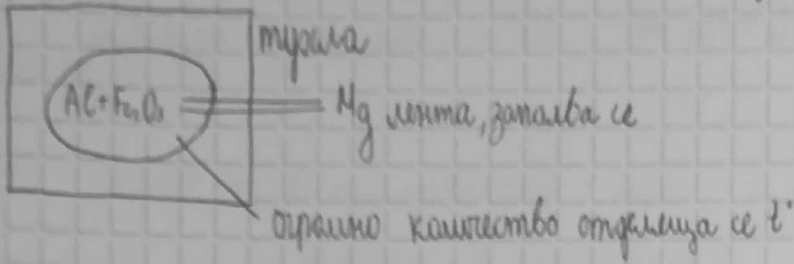 тухла
Al+Fe₂O₃
Mg лента, запалва се
огромно количество отделяща се t°